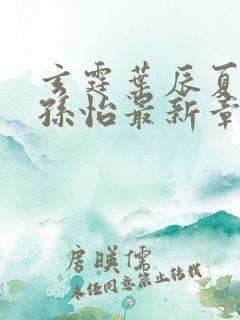 玄霆叶辰夏
孙怡最新章
房暎儒
未经同意禁止转载